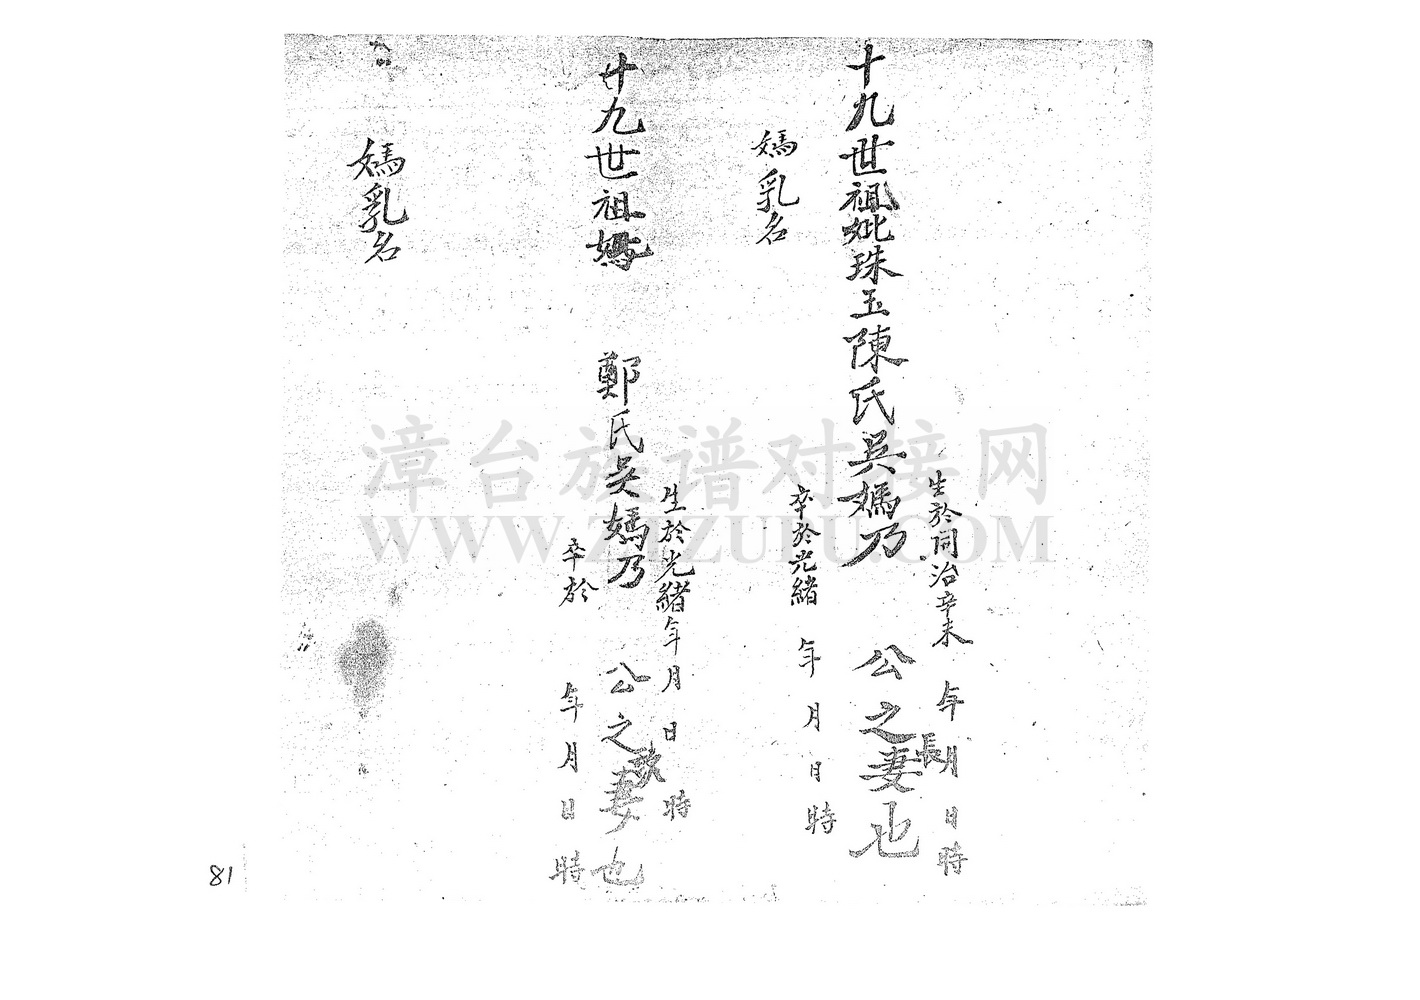 十九世祖妣珠玉陳氏吳媽乃 公之長妻也
生於同治辛未 年 月 日 時
卒於光緒 年 月 日 時
媽乳名
十九世祖媽 鄭氏吳媽乃 公之妻也
生於光緒 年 月 日 時
卒於 年 月 日 時
媽乳名
81
漳台族谱对接网
WWW.ZTZUPU.COM